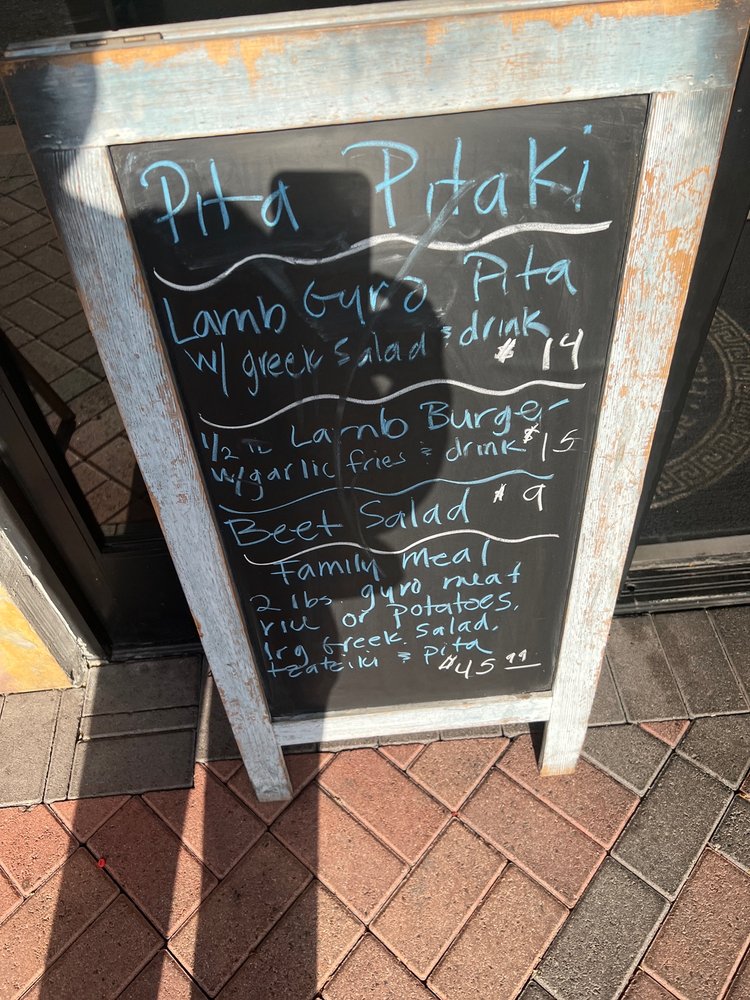 Pita Pitaki
Lamb Gyro Pita
w/ greek salad & drink $14
1/2 lb Lamb Burger
w/garlic fries & drink $15
Beet Salad $9
Family meal
2 lbs. gyro meat
rice or potatoes,
lrg Greek salad,
tzatziki & pita
$45.99